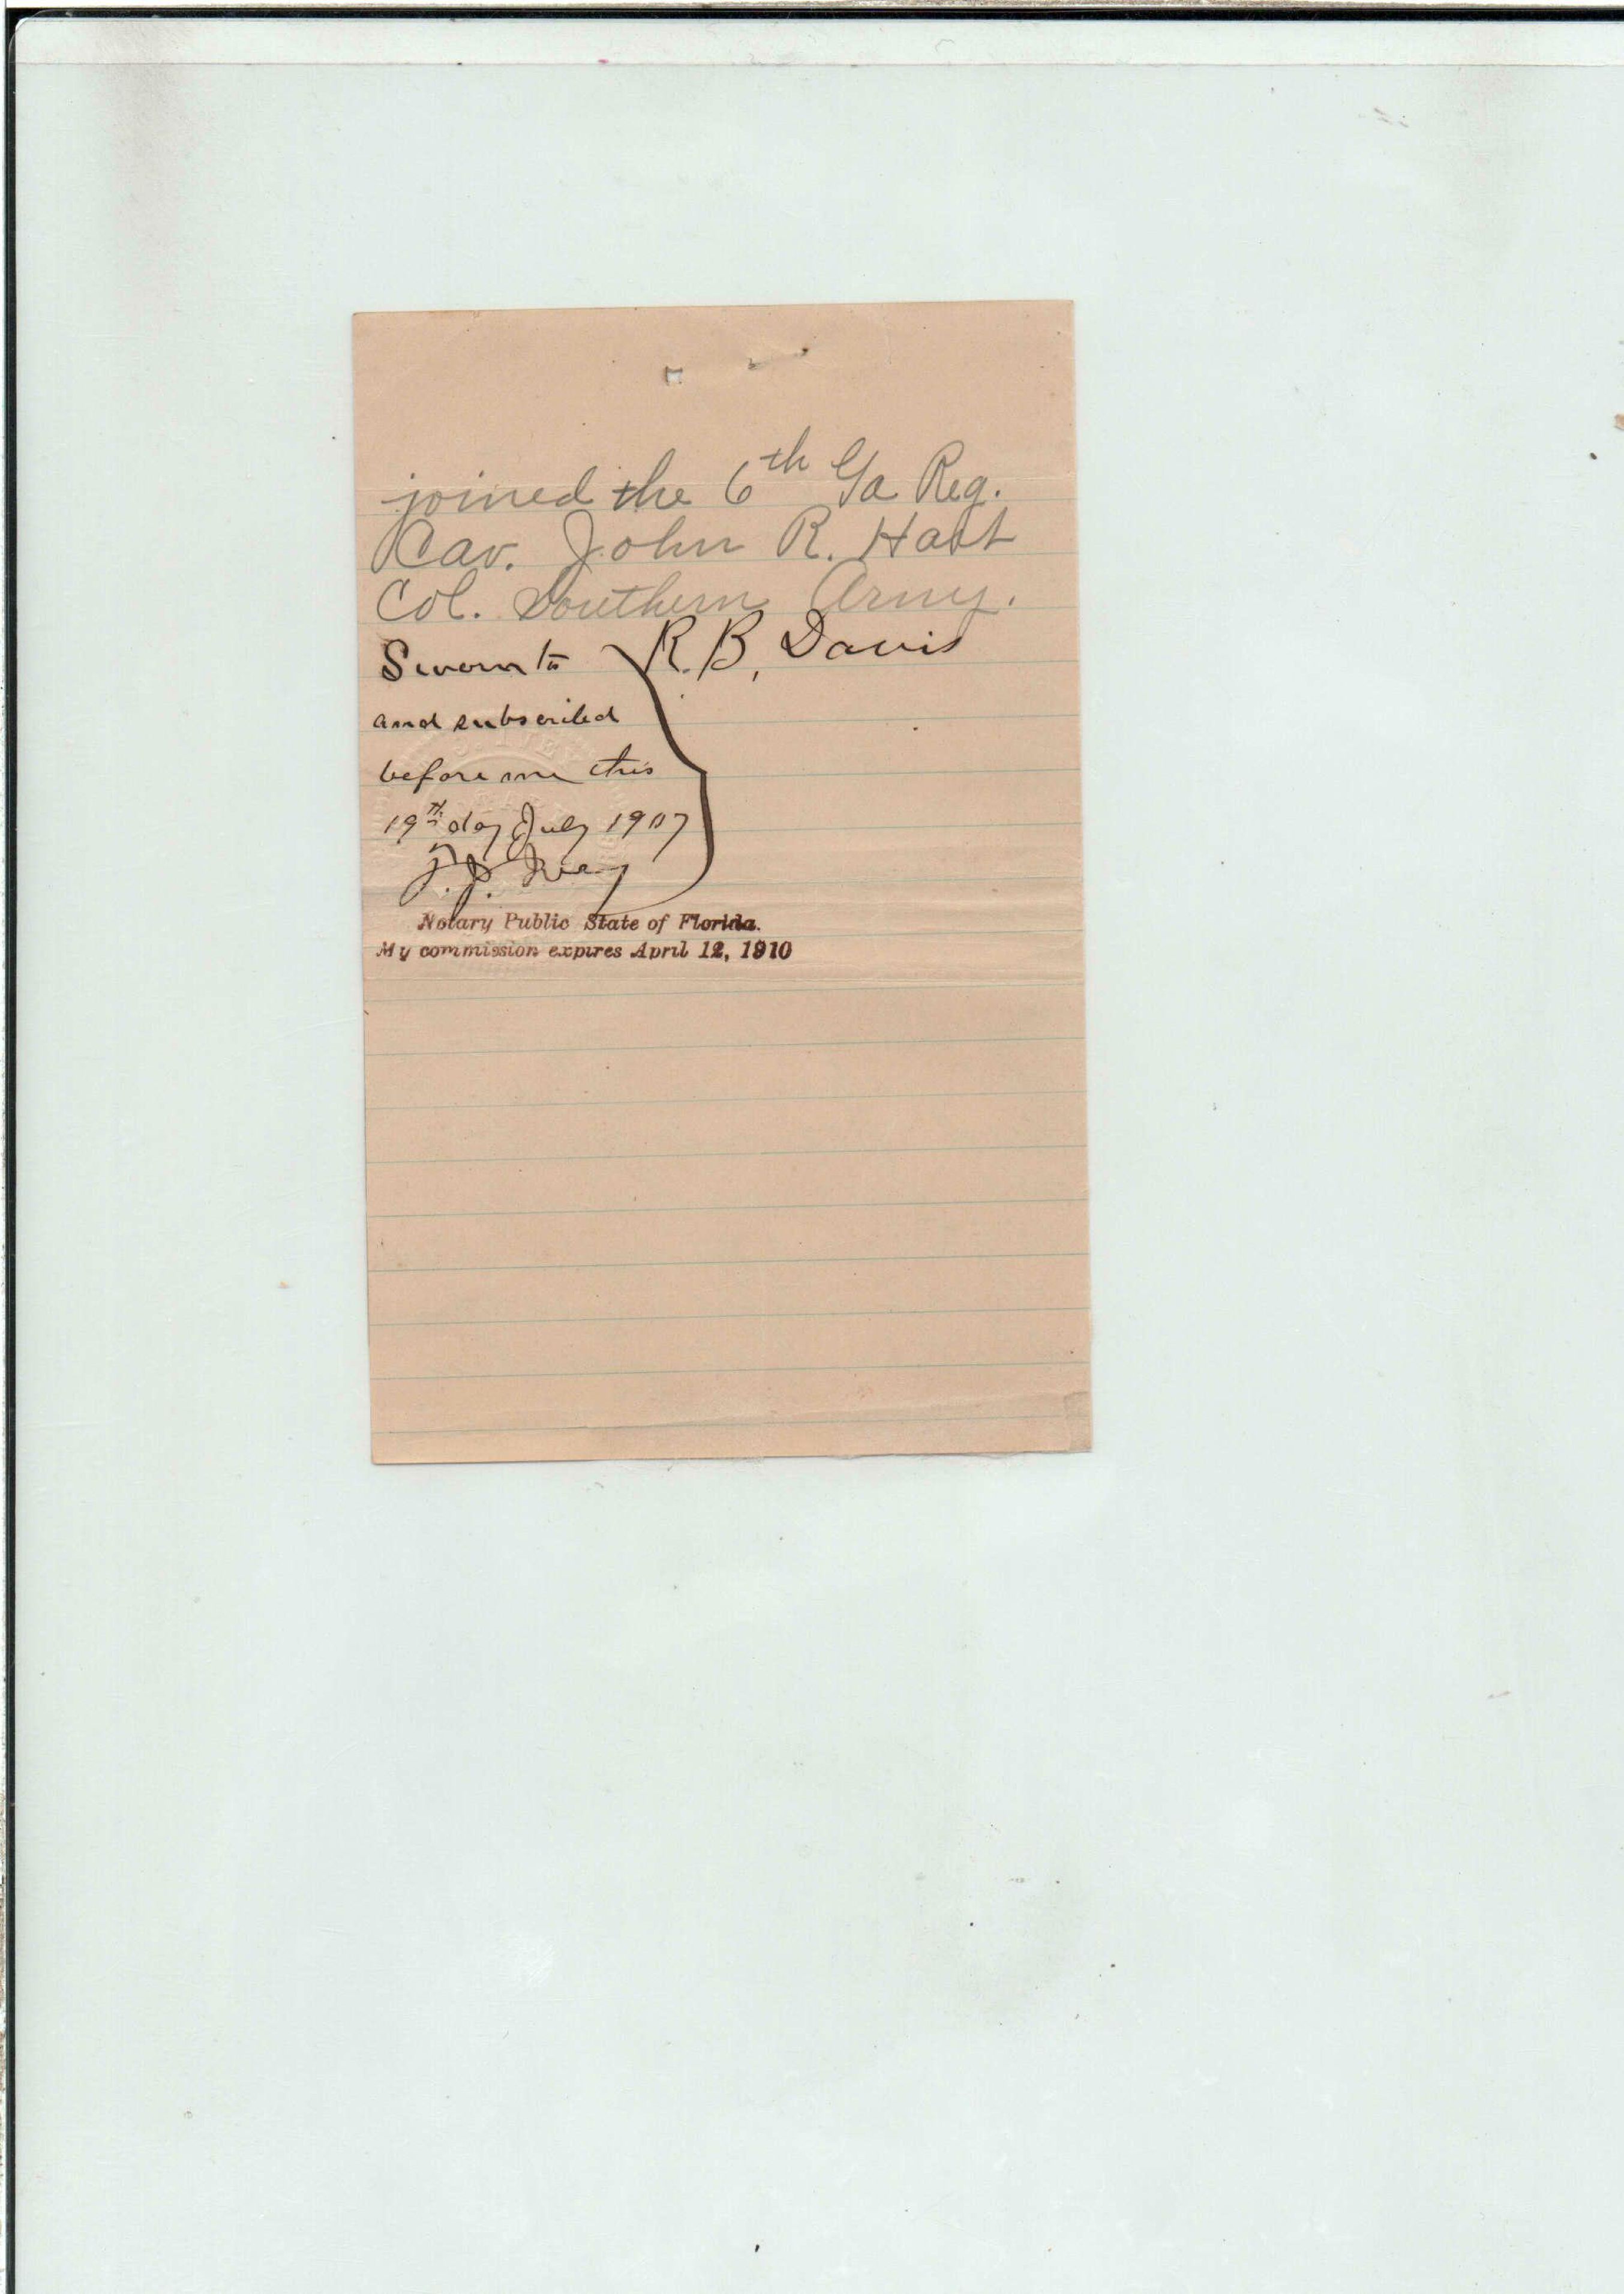 joined the 6th Ga Reg.
Cav. John R. Hart
Col. Southern Army.
Sworn to R. B. Davis
and subscribed
before me this
19th day July 1907
Notary Public State of Florida.
My commission expires April 12, 1910